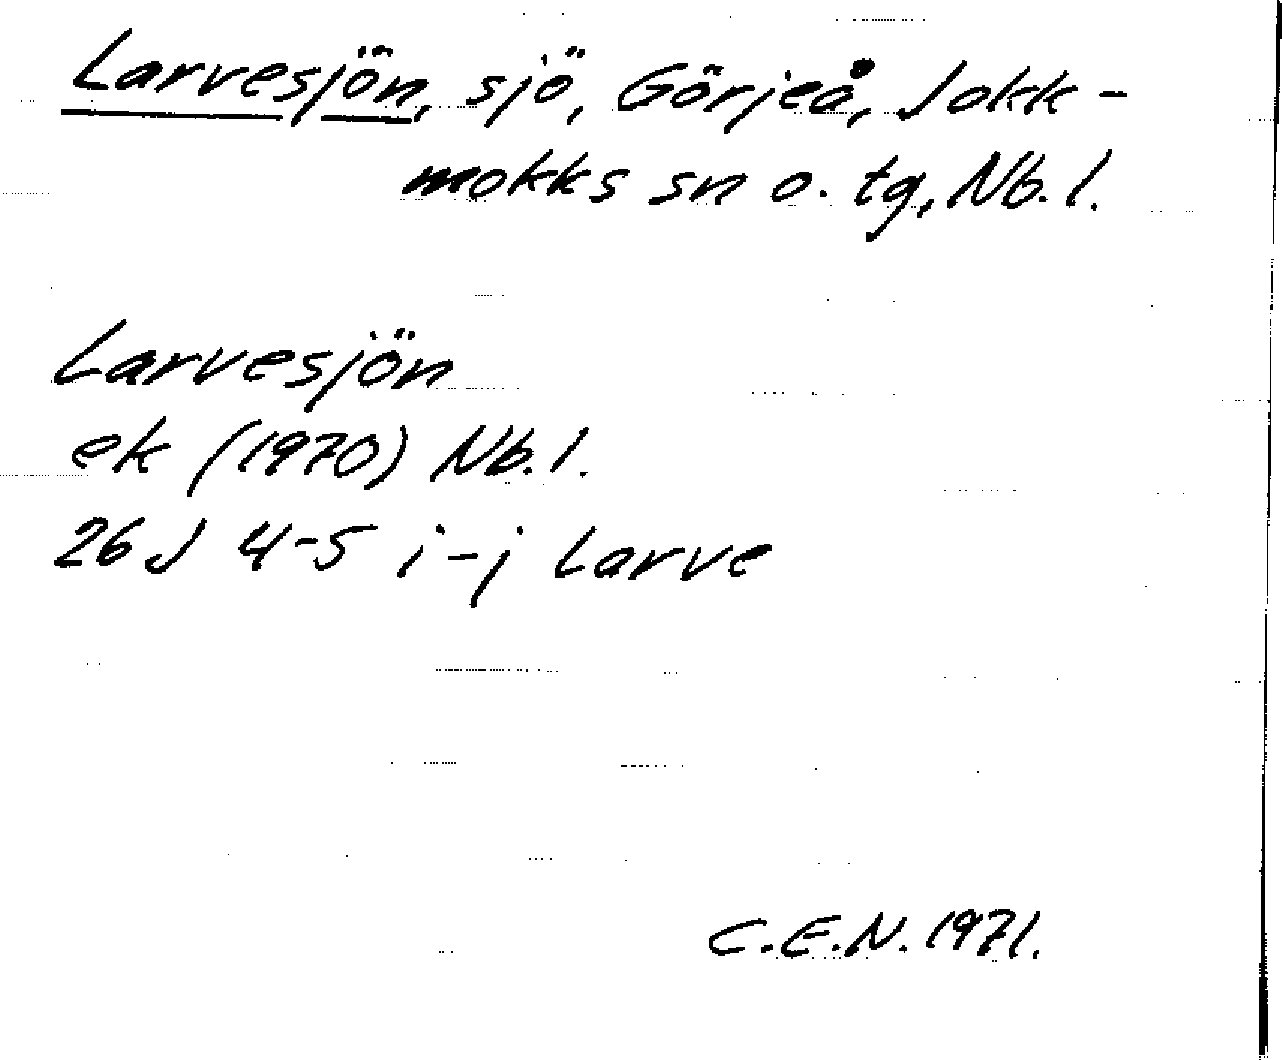 Larvesjön, sjö, Görjeå, Jokk-
mokks sn o. tg, Nb. l.
Larvesjön
ek (1970) Nb. l.
26J 4-5 i-j Larve
C.E.N. 1971.